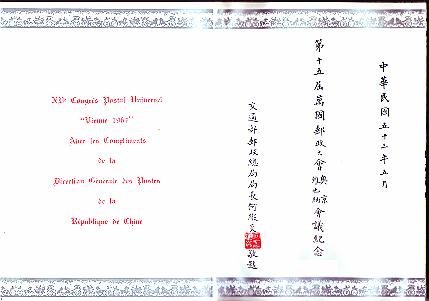 XVe Congrès Postal Universel
"Vienne 1964"
Avec les Compliments
de la
Direction Générale des Postes
de la
République de Chine
中華民國五十三年五月
第十五屆萬國郵政大會奧京維也納會議紀念
交通部郵政總局局長何縱炎敬題